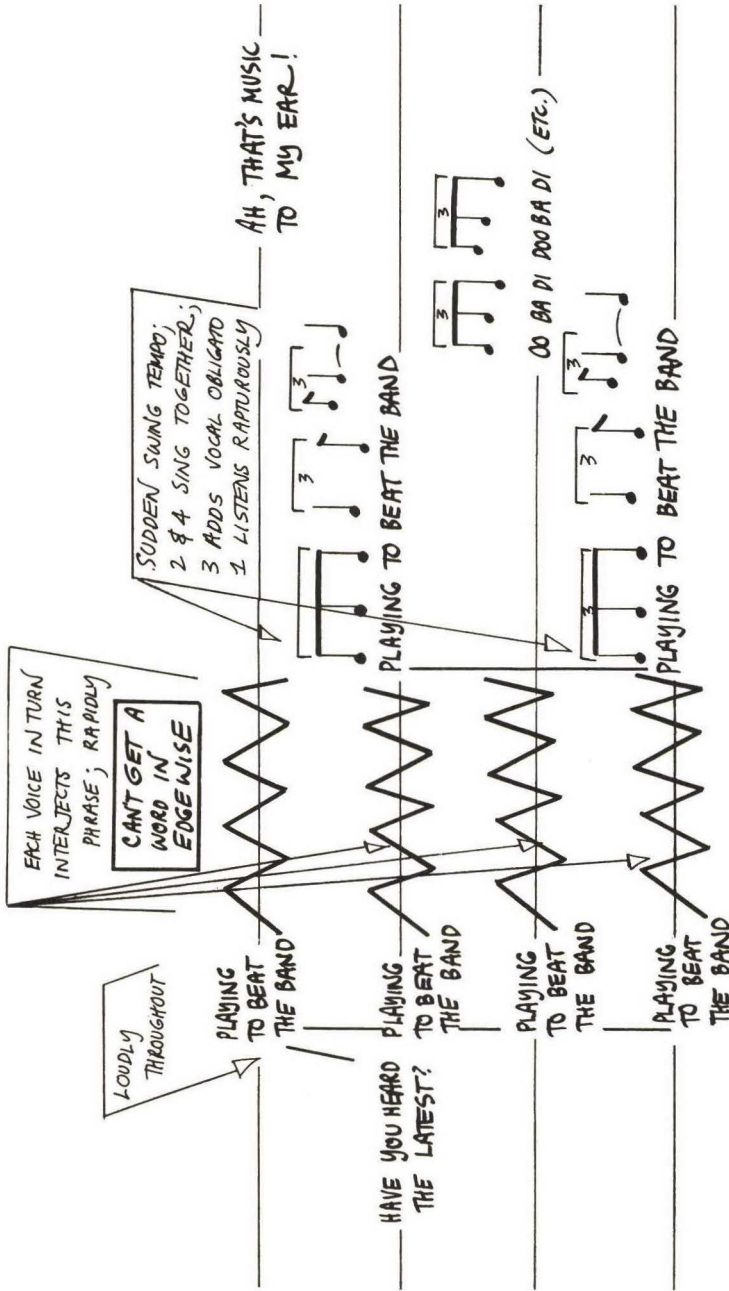 LOUDLY
THROUGHOUT
EACH VOICE IN TURN
INTERJECTS THIS
PHRASE; RAPIDLY
CAN'T GET A
WORD IN
EDGEWISE
SUDDEN SWING TEMPO;
2 & 4 SING TOGETHER;
3 ADDS VOCAL OBLIGATO
1 LISTENS RAPTUROUSLY
PLAYING
TO BEAT
THE BAND
AH, THAT'S MUSIC
TO MY EAR!
HAVE YOU HEARD
THE LATEST?
PLAYING
TO BEAT
THE BAND
3
3
PLAYING TO BEAT THE BAND
PLAYING
TO BEAT
THE BAND
3
3
OO BA DI DOO BA DI (ETC.)
PLAYING
TO BEAT
THE BAND
3
3
3
PLAYING TO BEAT THE BAND